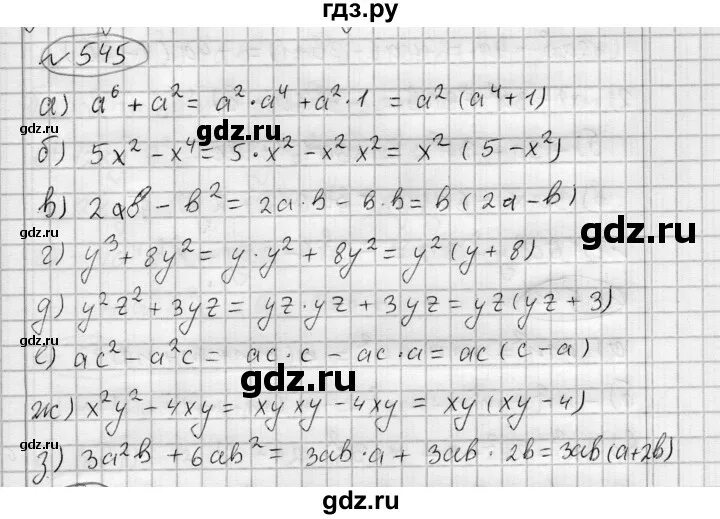 гдз.ру
№ 545
а) a⁶ + a² = a²·a⁴ + a²·1 = a² (a⁴+1)
gdz.ru
gdz.ru
б) 5x² − x⁴ = 5·x² − x² x² = x² (5 − x²)
в) 2ab − b² = 2a·b − b·b = b (2a − b)
gdz.ru
г) y³ + 8y² = y·y² + 8y² = y² (y + 8)
д) y²z² + 3yz = yz·yz + 3yz = yz (yz + 3)
gdz.ru
е) ac² − a²c = ac·c − ac·a = ac (c − a)
gdz.ru
ж) x²y² − 4xy = xy xy − 4xy = xy (xy − 4)
gdz.ru
gdz.ru
з) 3a²b + 6ab² = 3ab·a + 3ab · 2b = 3ab (a+2b)
gdz.ru